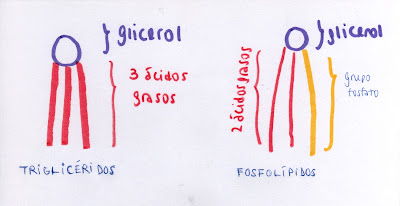 glicerol
3 ácidos
grasos
TRIGLICÉRIDOS
glicerol
2 ácidos grasos
grupo
fosfato
FOSFOLÍPIDOS